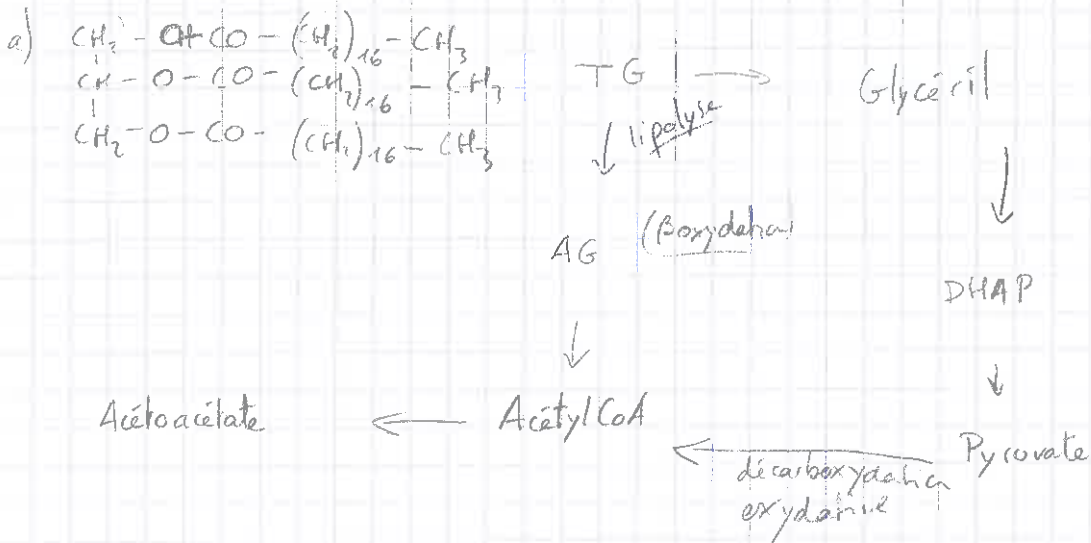 a) CH₂ - OH CO - (CH₂)₁₆ - CH₃
CH - O - CO - (CH₂)₁₆ - CH₃
CH₂ - O - CO - (CH₂)₁₆ - CH₃
TG → Glycéril
↓ lipolyse ↓
AG (βoxydation
DHAP
↓ ↓
Acétoacétate ← Acétyl CoA ← Pyruvate
décarboxydation
oxydative